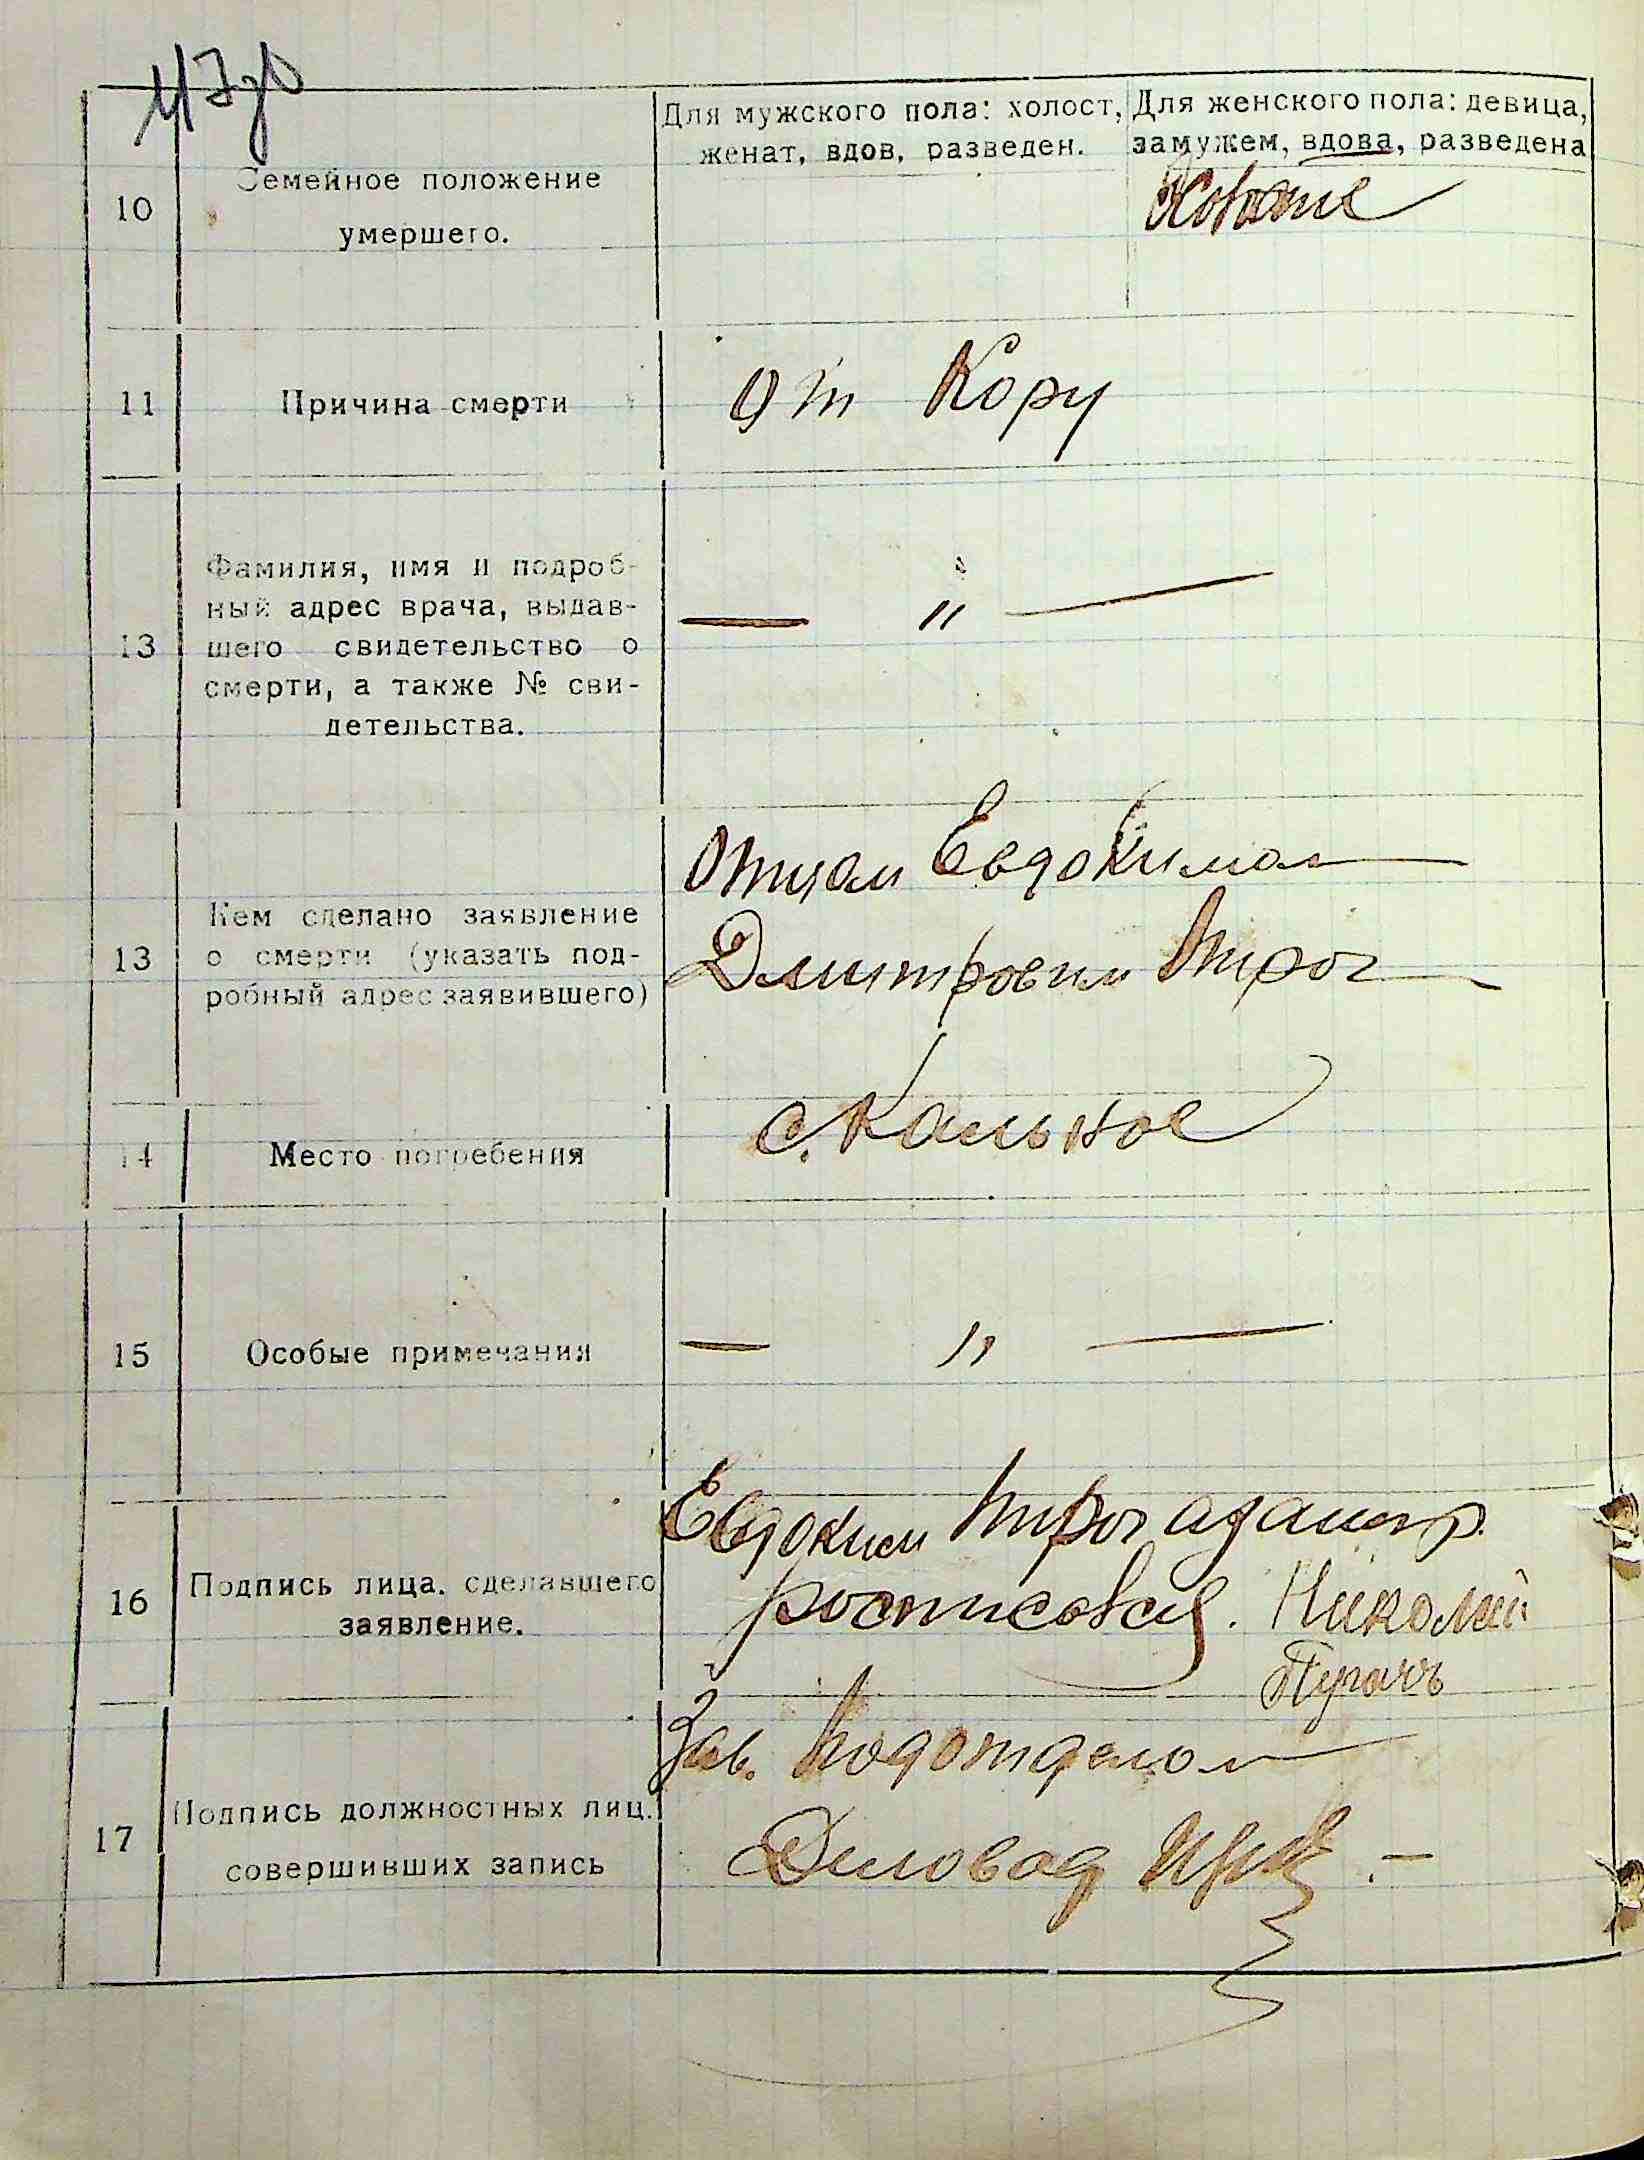 Для мужского пола: холост,
женат, вдов, разведен.
Для женского пола: девица,
замужем, вдова, разведена
10
Семейное положение
умершего.
11
Причина смерти
От Кору
13
Фамилия, имя и подроб-
ный адрес врача, выдав-
шего свидетельство о
смерти, а также № сви-
детельства.
— " —
13
Кем сделано заявление
о смерти (указать под-
робный адрес заявившего)
Отцом Евдокимом
Дмитровим Пирог
14
Место погребения
с. Кальное
15
Особые примечания
— " —
16
Подпись лица. сделавшего
заявление.
Евдоким Пирог
росписовся. Николай
Пугачъ
17
Подпись должностных лиц.
совершивших запись
Зав. Подотделом
Диловод